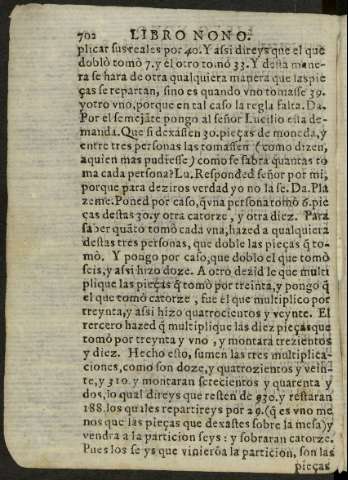 702 LIBRO NONO.
plicar sus reales por 40. Y assi direys que el que
doblò tomò 7. y el otro tomò 33. Y desta mane-
ra se hara de otra qualquiera manera que las pie
ças se repartan, sino es quando vno tomasse 39.
y otro vno, porque en tal caso la regla falta. Da.
Por el semejãte pongo al señor Lucilio esta de-
manda. Que si dexassen 30. pieças de moneda, y
entre tres personas las tomassen (como dizen,
a quien mas pudiesse) como se sabra quantas to
ma cada persona? Lu. Responded señor por mi,
porque para deziros verdad yo no la se. Da. Pla
zeme. Poned por caso, q̃ vna persona tomò 6. pie
ças destas 30. y otra catorze, y otra diez. Para
saber quãto tomò cada vna, hazed a qualquiera
destas tres personas, que doble las pieças q̃ to-
mò. Y pongo por caso, que doblo el que tomò
seis, y assi hizo doze. A otro dezid le que multi
plique las pieças q̃ tomò por treinta, y pongo q̃
el que tomò catorze, fue el que multiplico por
treynta, y assi hizo quatrocientos y veynte. El
rercero hazed q̃ multiplique las diez pieças que
tomò por treynta y vno, y montara trezientos
y diez. Hecho esto, sumen las tres multiplica-
ciones, como son doze, y quatrozientos y vein-
te, y 310. y montaran setecientos y quarenta y
dos, lo qual direys que resten de 930. y restaran
188. los quales repartireys por 29. (q̃ es vno me
nos que las pieças que dexastes sobre la mesa) y
vendra a la particion seys: y sobraran catorze.
Pues los seys que vinierõ a la particion, son las
pieças